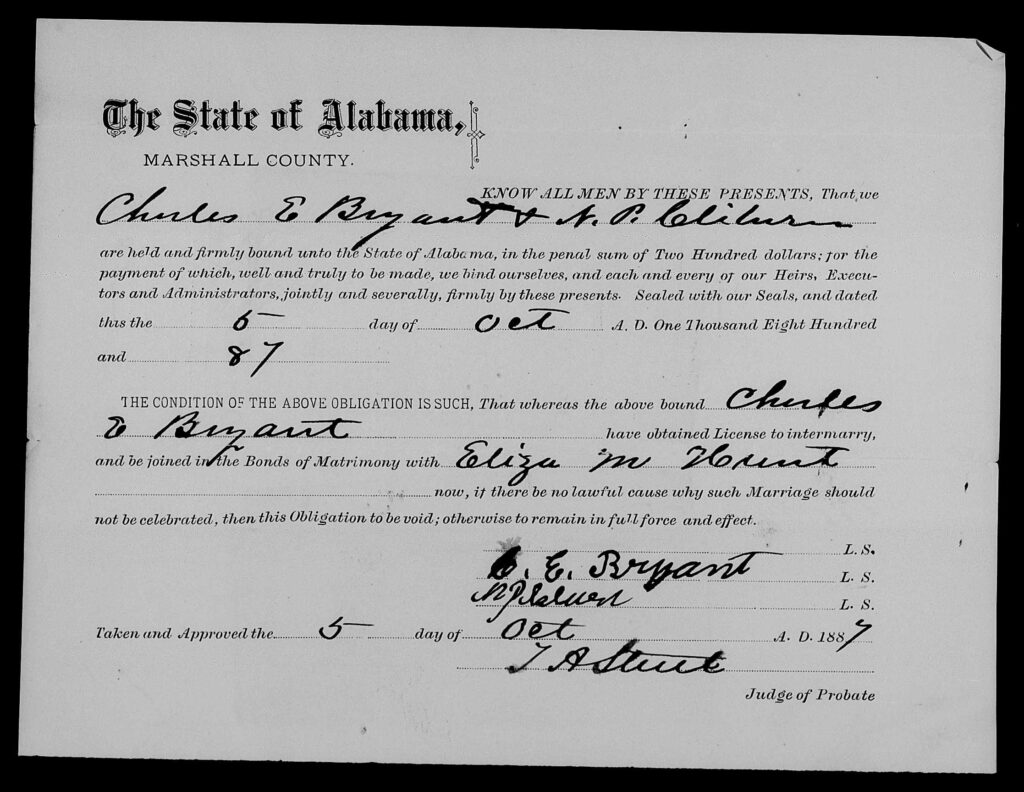 The State of Alabama,
MARSHALL COUNTY.
KNOW ALL MEN BY THESE PRESENTS, That we
Charles E Bryant & N. P. Cliburn
are held and firmly bound unto the State of Alabama, in the penal sum of Two Hundred dollars; for the
payment of which, well and truly to be made, we bind ourselves, and each and every of our Heirs, Execu-
tors and Administrators, jointly and severally, firmly by these presents. Sealed with our Seals, and dated
this the 5 day of Oct A. D. One Thousand Eight Hundred
and 87
THE CONDITION OF THE ABOVE OBLIGATION IS SUCH, That whereas the above bound Charles
E Bryant have obtained License to intermarry,
and be joined in the Bonds of Matrimony with Eliza M Hunt
now, if there be no lawful cause why such Marriage should
not be celebrated, then this Obligation to be void; otherwise to remain in full force and effect.
L. S.
C. E. Bryant L. S.
N P L. S.
Taken and Approved the 5 day of Oct A. D. 1887
T A Street
Judge of Probate